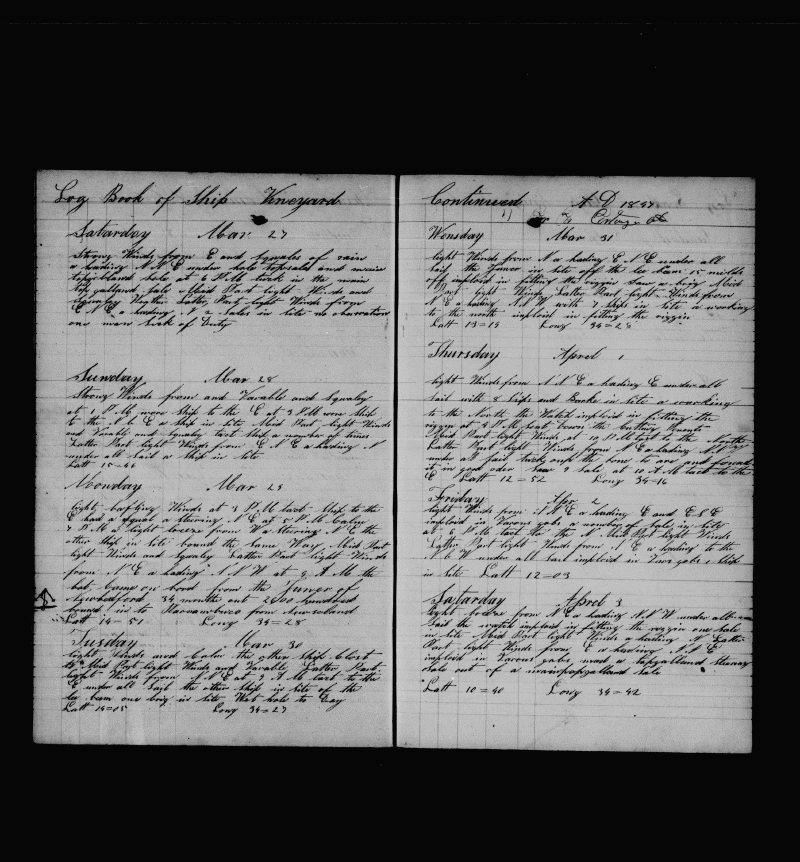 Log Book of Ship Vineyard
Satarday Mar 27
Strong Winds from E and Squales of rain
a heading N N E under hole topsales and main
top galland sale at 5 PM tuck in the main
top galland sale Mid Part light Winds and
Squaley Wether Latter Part light Winds from
E N E a heading N 2 Sales in Site no observation
one man sick of Duty
Sunday Mar 28
Strong Winds from and Varable and Squaley
at 1 P M wore Ship to the E at 3 PM wore Ship
to the N b E a Ship in Site Mid Part light Winds
and Varable and Squaley tact Ship a number of times
Latter Part light Winds from E N E a heading N
under all Sail a Ship in Site
Latt 15=44
Monday Mar 29
light baffling Winds at 3 P M tact Ship to the
E had a Squal a Stering N E at 5 P M Calm
7 P M a light breeze from W a Stering N E the
other Ship in Site bound the Same Way Mid Part
light Winds and Squaley Latter Part light Winds
from N E a heading N N W at 9 A M the
bote Came on bord from the Junior of
Newbedford 34 months out 2600
bound is to Parnambuco from Newzeland
Latt 14=51 Long 34=28
Tusday Mar 30
light Winds and Calm the other Ship Close
to Mid Part light Winds and Varable Latter Part
light Winds from N E at 9 A M tact to the
E under all Sail the other Ship in Site of the
lee beam one brig in Site Wet hole to Day
Latt 14=05 Long 34=27
Continued A D 1847
Wensday Mar 31
light Winds from N a heading E N E under all
Sail the Junor in Site off the lee beam 15 milds
off imploid in fitting the riggin Saw a brig Mid
Part light Winds Latter Part light Winds from
N E a heading N N W with 7 Ships in Site a working
to the north imploid in fitting the riggin
Latt 13=19 Long 34=28
Thursday Aperel 1
light Winds from N N E a heading E under all
Sail with 8 Ships and Barks in Site a working
to the North the Watch imploid in fitting the
riggin at 8 P M
Mid Part light Winds at 10 P M tact to the North
Latter Part light Winds from N E a heading N b W
under all Sail tuck oup the bone to are and found
it in good oder Saw 9 Sale at 10 A M tact to the
E Latt 12=52 Long 34=16
Friday Apr 2
light Winds from N N E a heading E and E S E
imploid in Varous gobs a number of Sale in Site
at 6 P M tact to the N Mid Part light Winds
Latter Part light Winds from N E a heading to the
N E W under all Sail imploid in Vars gobs 1 Ship
in Site Latt 12=03
Satarday Aperel 3
light breeze from N E a heading N N W under all
Sail the watch imploid in fitting the riggin one Sale
in Site Mid Part light Winds a heading N Latter
Part light Winds from E a heading N N E
imploid in Varous gobs mad a topgalland
Sale out of a maintopgalland Sale
Latt 10=40 Long 34=42